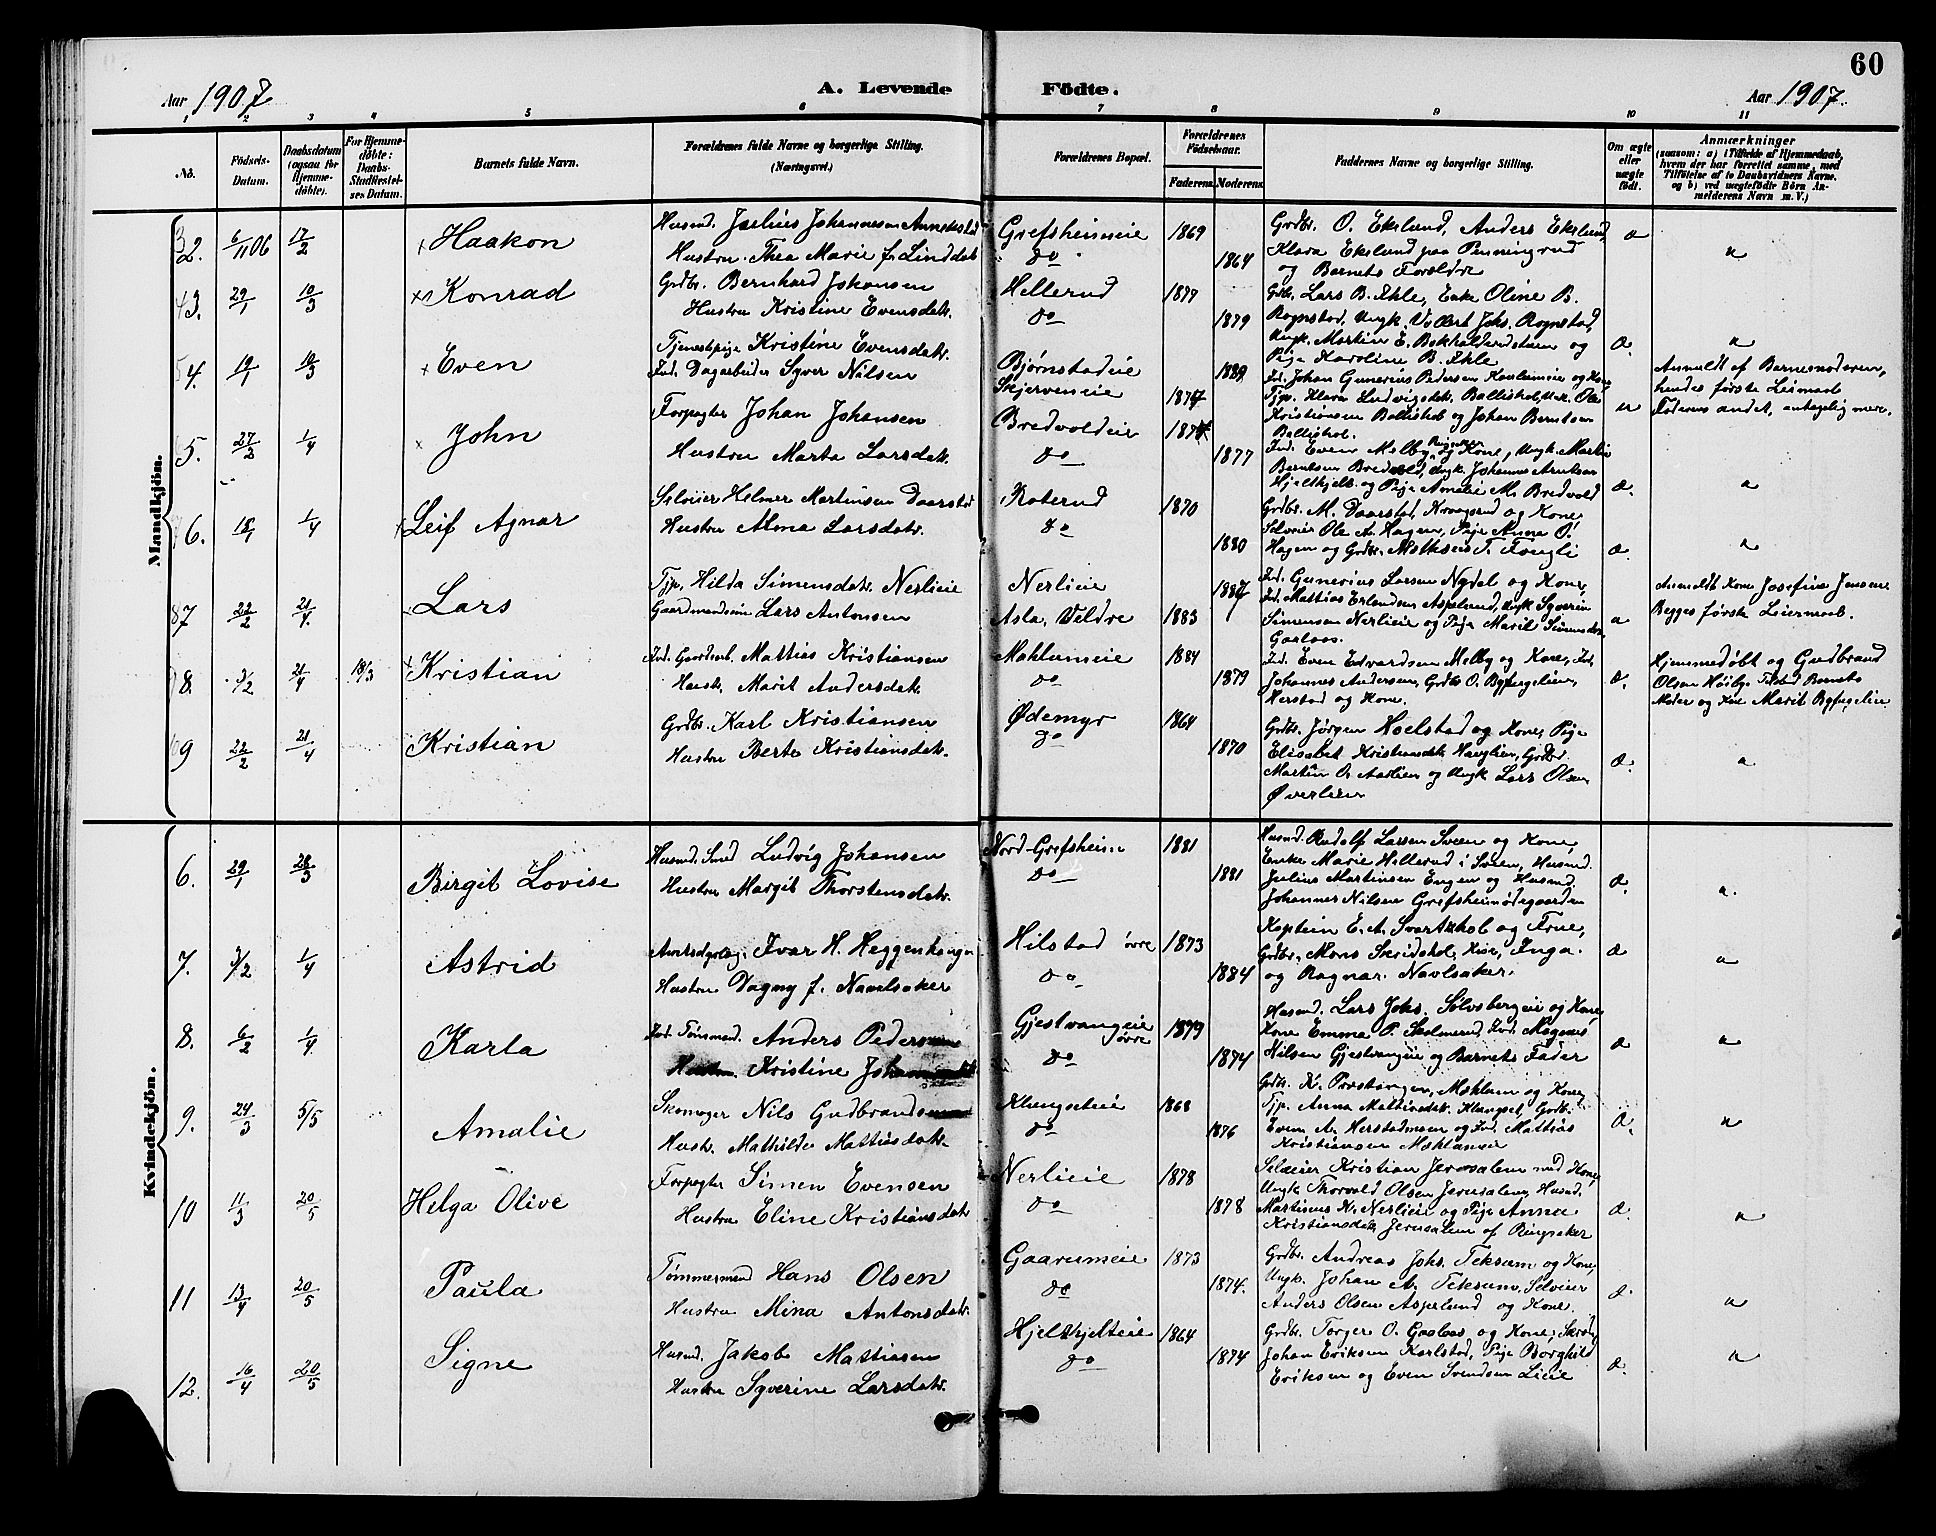 60
Aar 1907 A. Levende Födte. Aar 1907.
1 2 3 4 5 6 7 8 9 10 11
No.
Födsels-
Datum.
Daabsdatum
(ogsaa for
Hjemme-
döbte).
For Hjemme-
döbte:
Daabs-
Stadfæstel-
ses Datum.
Barnets fulde Navn.
Forældrenes fulde Navne og borgerlige Stilling.
(Næringsvei.)
Forældrenes Bopæl.
Forældrenes
Födselsaar.
Faderens. Moderens.
Faddernes Navne og borgerlige Stilling.
Om ægte
eller
uægte
født.
Anmærkninger
(saasom: a) i Tilfælde af Hjemmedaab,
hvem der har forrettet samme, med
Tilföielse af to Daabsvidners Navne,
og b) ved uægtefödte Börn An-
melderens Navn m. V.)
Mandkjön.
2. 6/11 06 17/2 Haakon
Husmd. Julius Johannesen Annekstad
Hustru Thea Marie f. Linddal
Grefsheimeie
do
1869
1864
Grdbr. O. Ekelund, Anders Ekelund,
Klara Ekelund paa Penningrud
og Barnets Forældre
æ
3. 29/1 10/3 Konrad
Grdbr. Bernhard Johansen
Hustru Kristine Evensdatr.
Hellerud
do
1877
1879
Grdbr. Lars B. Æhle, Enke Oline B.
Rognstad, Ungk. Volert Johs. Rognstad,
Ungk. Martin E. Bakhallendstuen og
Pige Karoline B. Æhle
æ.
4. 19/1 10/3 Even
Tjenestepige Kristine Evensdatr.
Ind. Dagarbeider Syver Nilsen
Bjørnstadeie
Skjerveneie
1889
1877
Ind. Johan Gunerius Pedersen Kaslumeie og Kone
Tjp. Klara Ludvigsdatr. Ballishol, Ungk. Ole
Kristiansen Ballishol og Johan Berntsen
Ballishol.
u
Anmeldt af Barnemoderen,
hendes første Leimaal
Faderens andet, antagelig mere.
5. 27/2 1/4 John
Forpagter Johan Johansen
Hustru Marta Larsdatr.
Bredvoldeie
do
1877
Ind. Even Melby, Ringsaker og Kone, Ungk. Martin
Berntsen Bredvold, Ungk. Johannes Arntsen
Hjelthjelb og Pige Amalie M. Bredvold
æ.
6. 18/1 1/4 Leif Agnar
Selveier Helmer Martinsen Daarstad
Hustru Alma Larsdatr.
Roterud
do
1870
1880
Grdbr. M. Daarstad, Kraagsrud og Kone,
Selveier Ole A. Hagen, Pige Anna O.
Hagen og Grdbr. Mathæus T. Fougli
æ.
7 22/2 21/4. Lars
Tjp. Hilda Simensdatr. Nerlieie
Gaardmandssøn Lars Antonsen
Nerlieie
Asla, Veldre
1887
1883
Ind. Gunerius Larsen Nydal og Kone,
Ind. Mattias Erlandsen Aspelund, Ungk Syverin
Simensen Nerlieie og Pige Marit Simensdatr.
Garlaas.
Anmeldt Kone Josefine Jensen
Begges første Leiermaal.
8. 3/2 21/4 18/3 Kristian
Ind. Gaardsarb. Mattias Kristiansen
Hustr. Marit Andersdatr.
Mæhlumeie
do
1884
1879
Ind. Even Edvardsen Melby og Kone, Ind.
Johannes Andersen, Grdbr O. Byfuglien,
Herstad og Kone.
æ.
Hjemmedøbt af Gudbrand
Olsen
Moder og Kone Marit Byfuglien
9 22/2 21/4 Kristian
Grdbr. Karl Kristiansen
Hustru Berte Kristiansdatr.
Ødemyr
do
1864
1870
Grdbr. Jørgen Hoelstad og Kone, Pige
Elisabet Kristiansdatr. Hauglien, Grdbr.
Martin O. Aaslien og Ungk Lars Olsen
Øverlien
æ.
Kvindekjön.
6. 29/1 28/3 Birgit Lovise
Husmd. Smed Ludvig Johansen
Hustru Margit Thorstensdatr.
Nord-Grefsheim
do
1881
1881
Husmd. Rudolf Larsen Sveen og Kone,
Enke Marie Hillerud i Sveen, Husmd.
Julius Martinsen Engen og Husmd.
Johannes Nilsen Grefsheimødegaarden
æ.
7. 3/2 1/4 Astrid
Amtsdyrlæge Ivar H. Heggenhaugen
Hustru Dagny f. Navelsaker
Hilstad øvre
do
1873
1884
Kaptein E. A. Svartshol og Frue,
Grdbr. Mons Skridshol, Kone, Inga
og Ragnar Navlsaker.
æ
8. 6/2 1/4 Karla
Ind. Tømmermd. Anders Pedersen
Hustru. Kristine Johannesdatr
Gjestvangeie øvre
do
1879
1874
Husmd. Lars Johs. Sølvsbergeie og Kone,
Kone Emma P. Skolmerud, Ind. Magnus
Nilsen Gjestvangeie og Barnets Fader
æ
9. 24/3 5/5 Amalie
Skomager Nils Gudbrandsen
Hustr. Mathilde Mattiasdatr.
Klangseteie
do
1868
1876
Grdbr. K. Prestangen, Mæhlum og Kone,
Tjp. Anna Mattisdatr. Klangset, Grdbr.
Even A. Herstadmoen og Ind. Mattias
Kristiansen Mæhlumeie
æ.
10 11/3 20/5 Helga Olive
Forpagter Simen Evensen
Hustru Eline Kristiansdatr
Nerlieie
do
1878
1878
Selveier Kristian Jerusalem med Kone,
Ungk Thorvald Olsen Jerusalem, Husmd.
Martinus K. Nerlieie og Pige Anna
Kristiansdatr. Jerusalem af Ringsaker
æ.
11 13/4 20/5 Paula
Tømmermand Hans Olsen
Hustru Mina Antonsdatr
Gaarumeie
do
1873
1874.
Grdbr. Andreas Johs. Teksum og Kone,
Ungk. Johan A. Teksum, Selveier
Anders Olsen Aspelund og Kone.
æ.
12. 16/4 20/5 Signe
Husmd. Jakob Mattiasen
Hustru Syverine Larsdatr.
Hjelthjelteie
do
1864
1874
Grdbr. Torger O. Gaalaas og Kone,
Johan Eriksen Karlstad, Pige Borghild
Eriksen og Even Svendsen Lieie
æ.